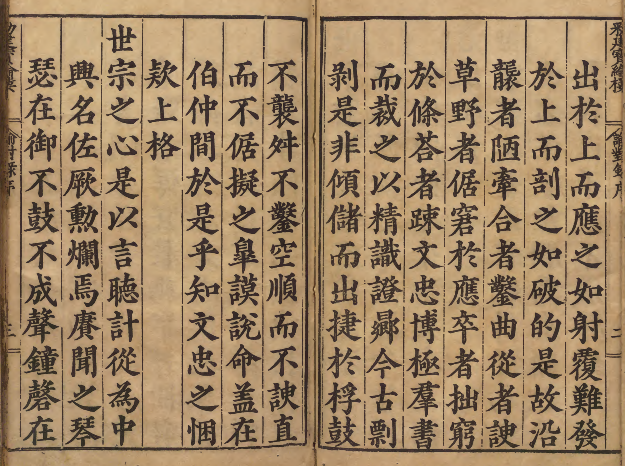 出於上而應之如射覆難發
於上而剖之如破的是故沿
襲者陋牽合者鑿曲從者諛
草野者倨窘於應卒者拙窮
於條荅者踈文忠博極羣書
而裁之以精識證曏今古剽
剥是非傾儲而出捷於桴鼓
不襲舛不鑿空順而不諛直
而不倨擬之臯謨說命盖在
伯仲間於是乎知文忠之悃
欵上格
世宗之心是以言聽計從為中
興名佐厥勲爛焉賡聞之琴
瑟在御不鼓不成聲鐘磬在